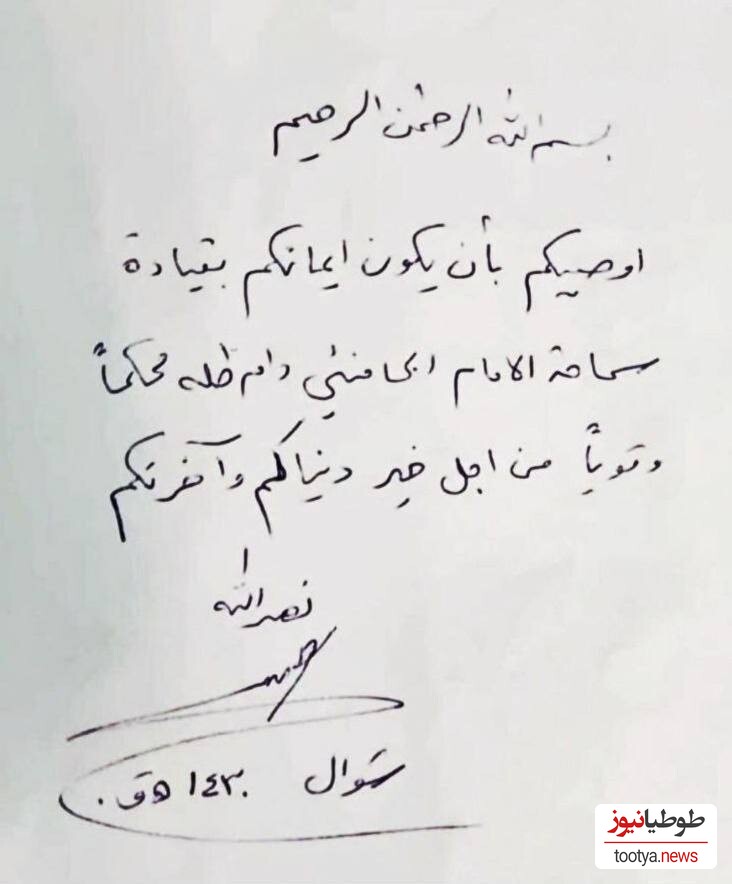 بسم الله الرحمن الرحيم
اوصيكم بأن يكون ايمانكم بقيادة
سماحة الامام الخامنئي دام ظله محكماً
وقوياً من اجل خير دنياكم وآخرتكم
نصرالله
شوال ١٤٣٠ ه‍ ق.
طوطیانیوز
tootya.news